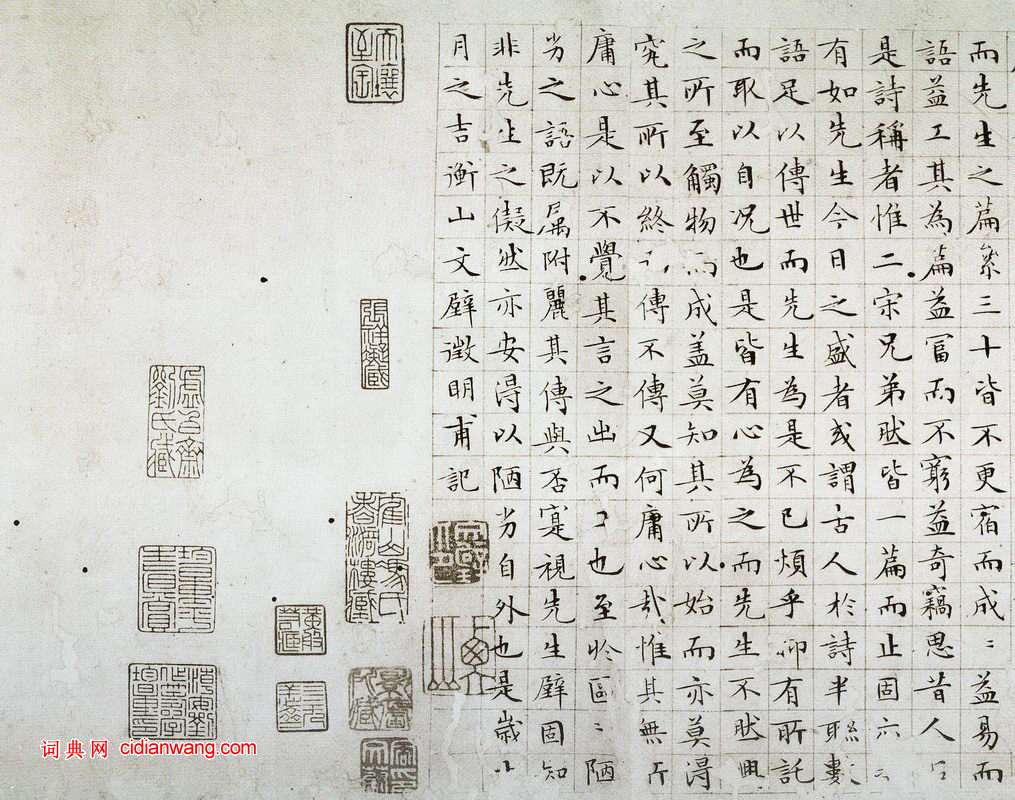 而先生之篇絫三十皆不更宿而成〻益易而
語益工其為篇益富而不窮益奇竊思昔人
是詩稱者惟二宋兄弟然皆一篇而止固
有如先生今日之盛者或謂古人於詩半聯數
語足以傳世而先生為是不已煩乎仰有所託
而取以自况也是皆有心為之而先生不然興
之所至觸物而成盖莫知其所以始而亦莫得
究其所以終而傳不傳又何庸心哉惟其無所
庸心是以不覺其言之出而工也至於區〻陋
劣之語既屬附麗其傳與否寔視先生壁固知
非先生之儗然亦安得以陋劣自外也是歲
月之吉衡山文壁徵明甫記
張祥凝藏
虛白齋劉氏藏
词典网 cidianwang.com